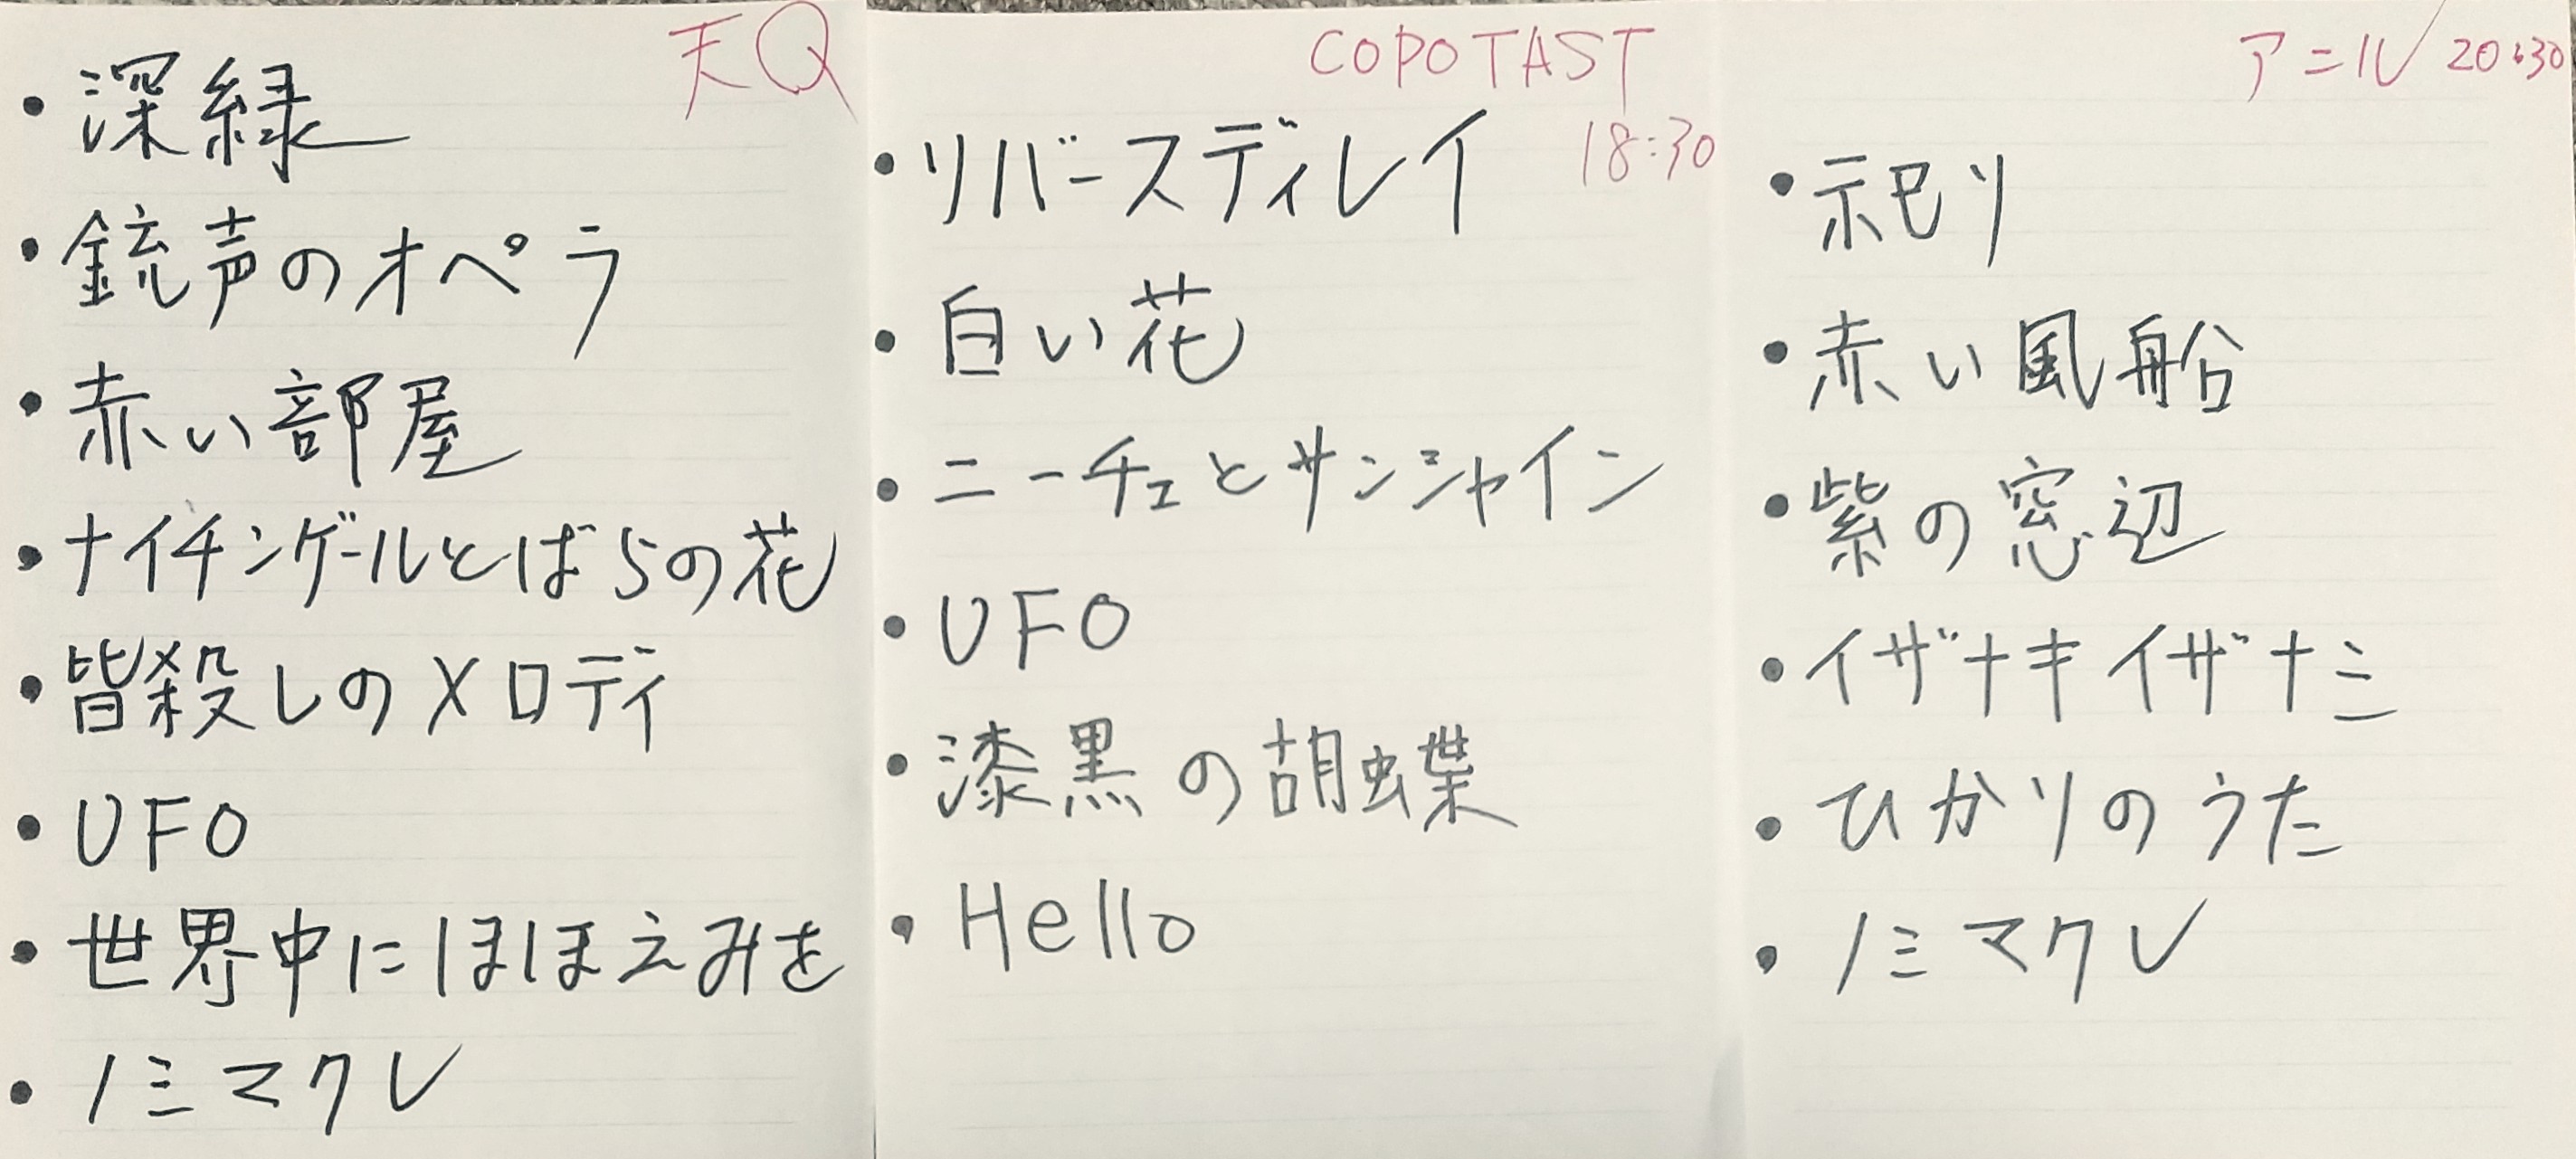 天Q
・深緑
・銃声のオペラ
・赤い部屋
・ナイチンゲールとばらの花
・皆殺しのメロディ
・UFO
・世界中にほほえみを
・ノミマクレ
COPOTAST
18:30
・リバースディレイ
・白い花
・ニーチェとサンシャイン
・UFO
・漆黒の胡蝶
・Hello
アニル 20:30
・祀り
・赤い風船
・紫の窓辺
・イザナキイザナミ
・ひかりのうた
・ノミマクレ